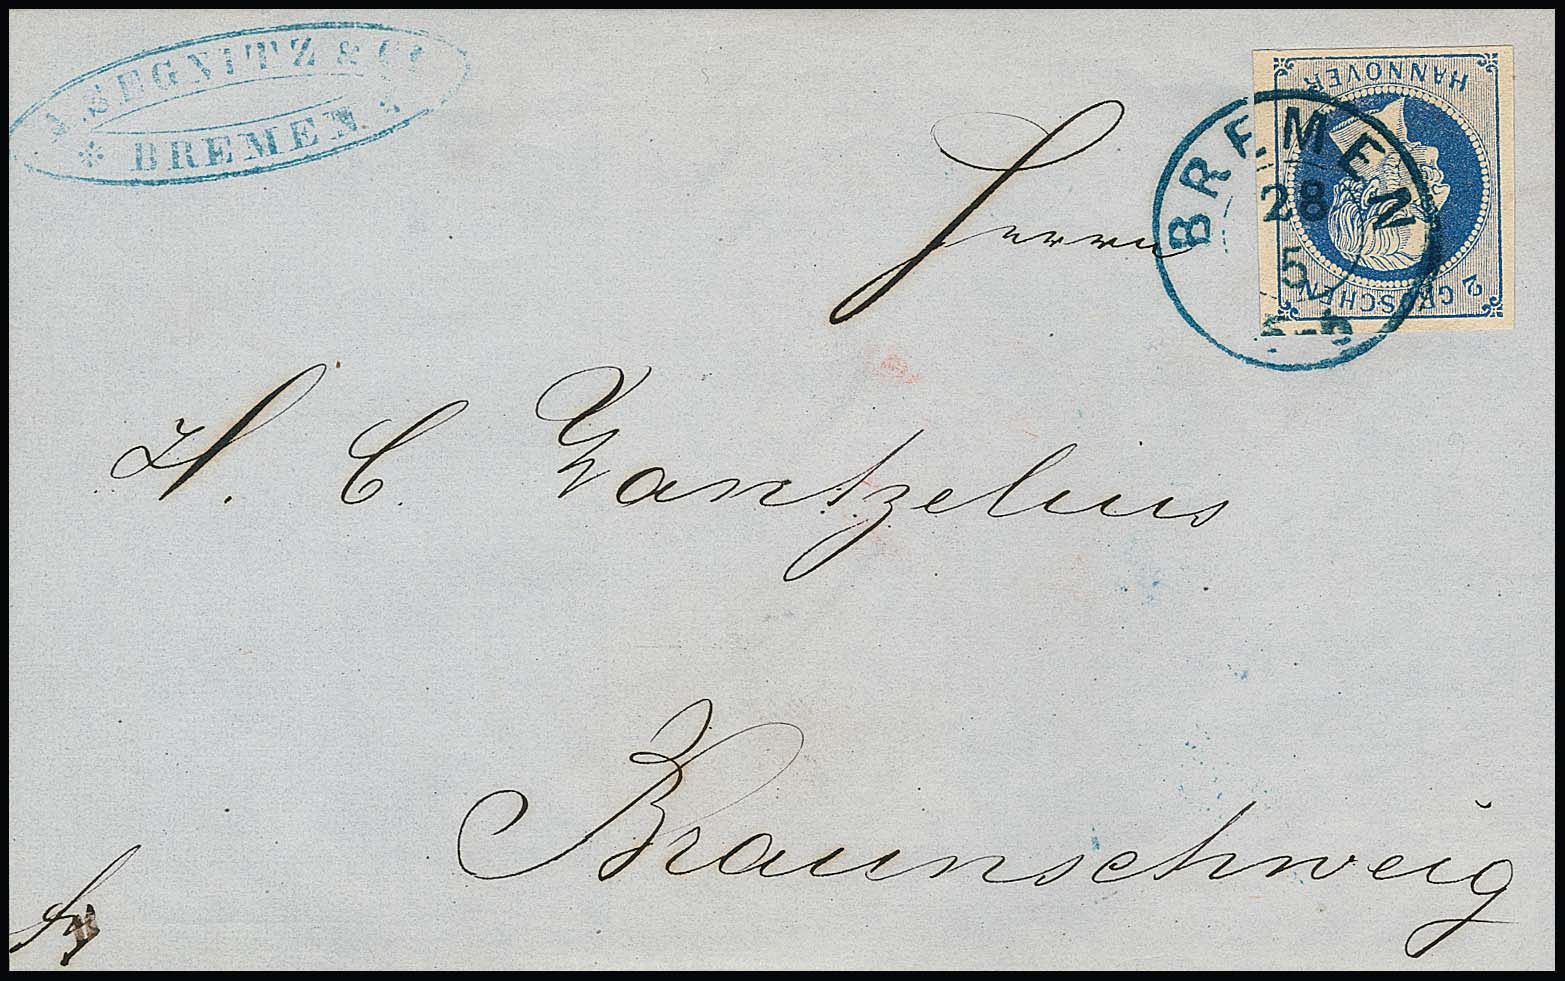 A. SEGNITZ & Co
* BREMEN *
HANNOVER
2 GROSCHEN
BREMEN
28
5
5-6
Herrn
H. C. Gantzelius
Braunschweig